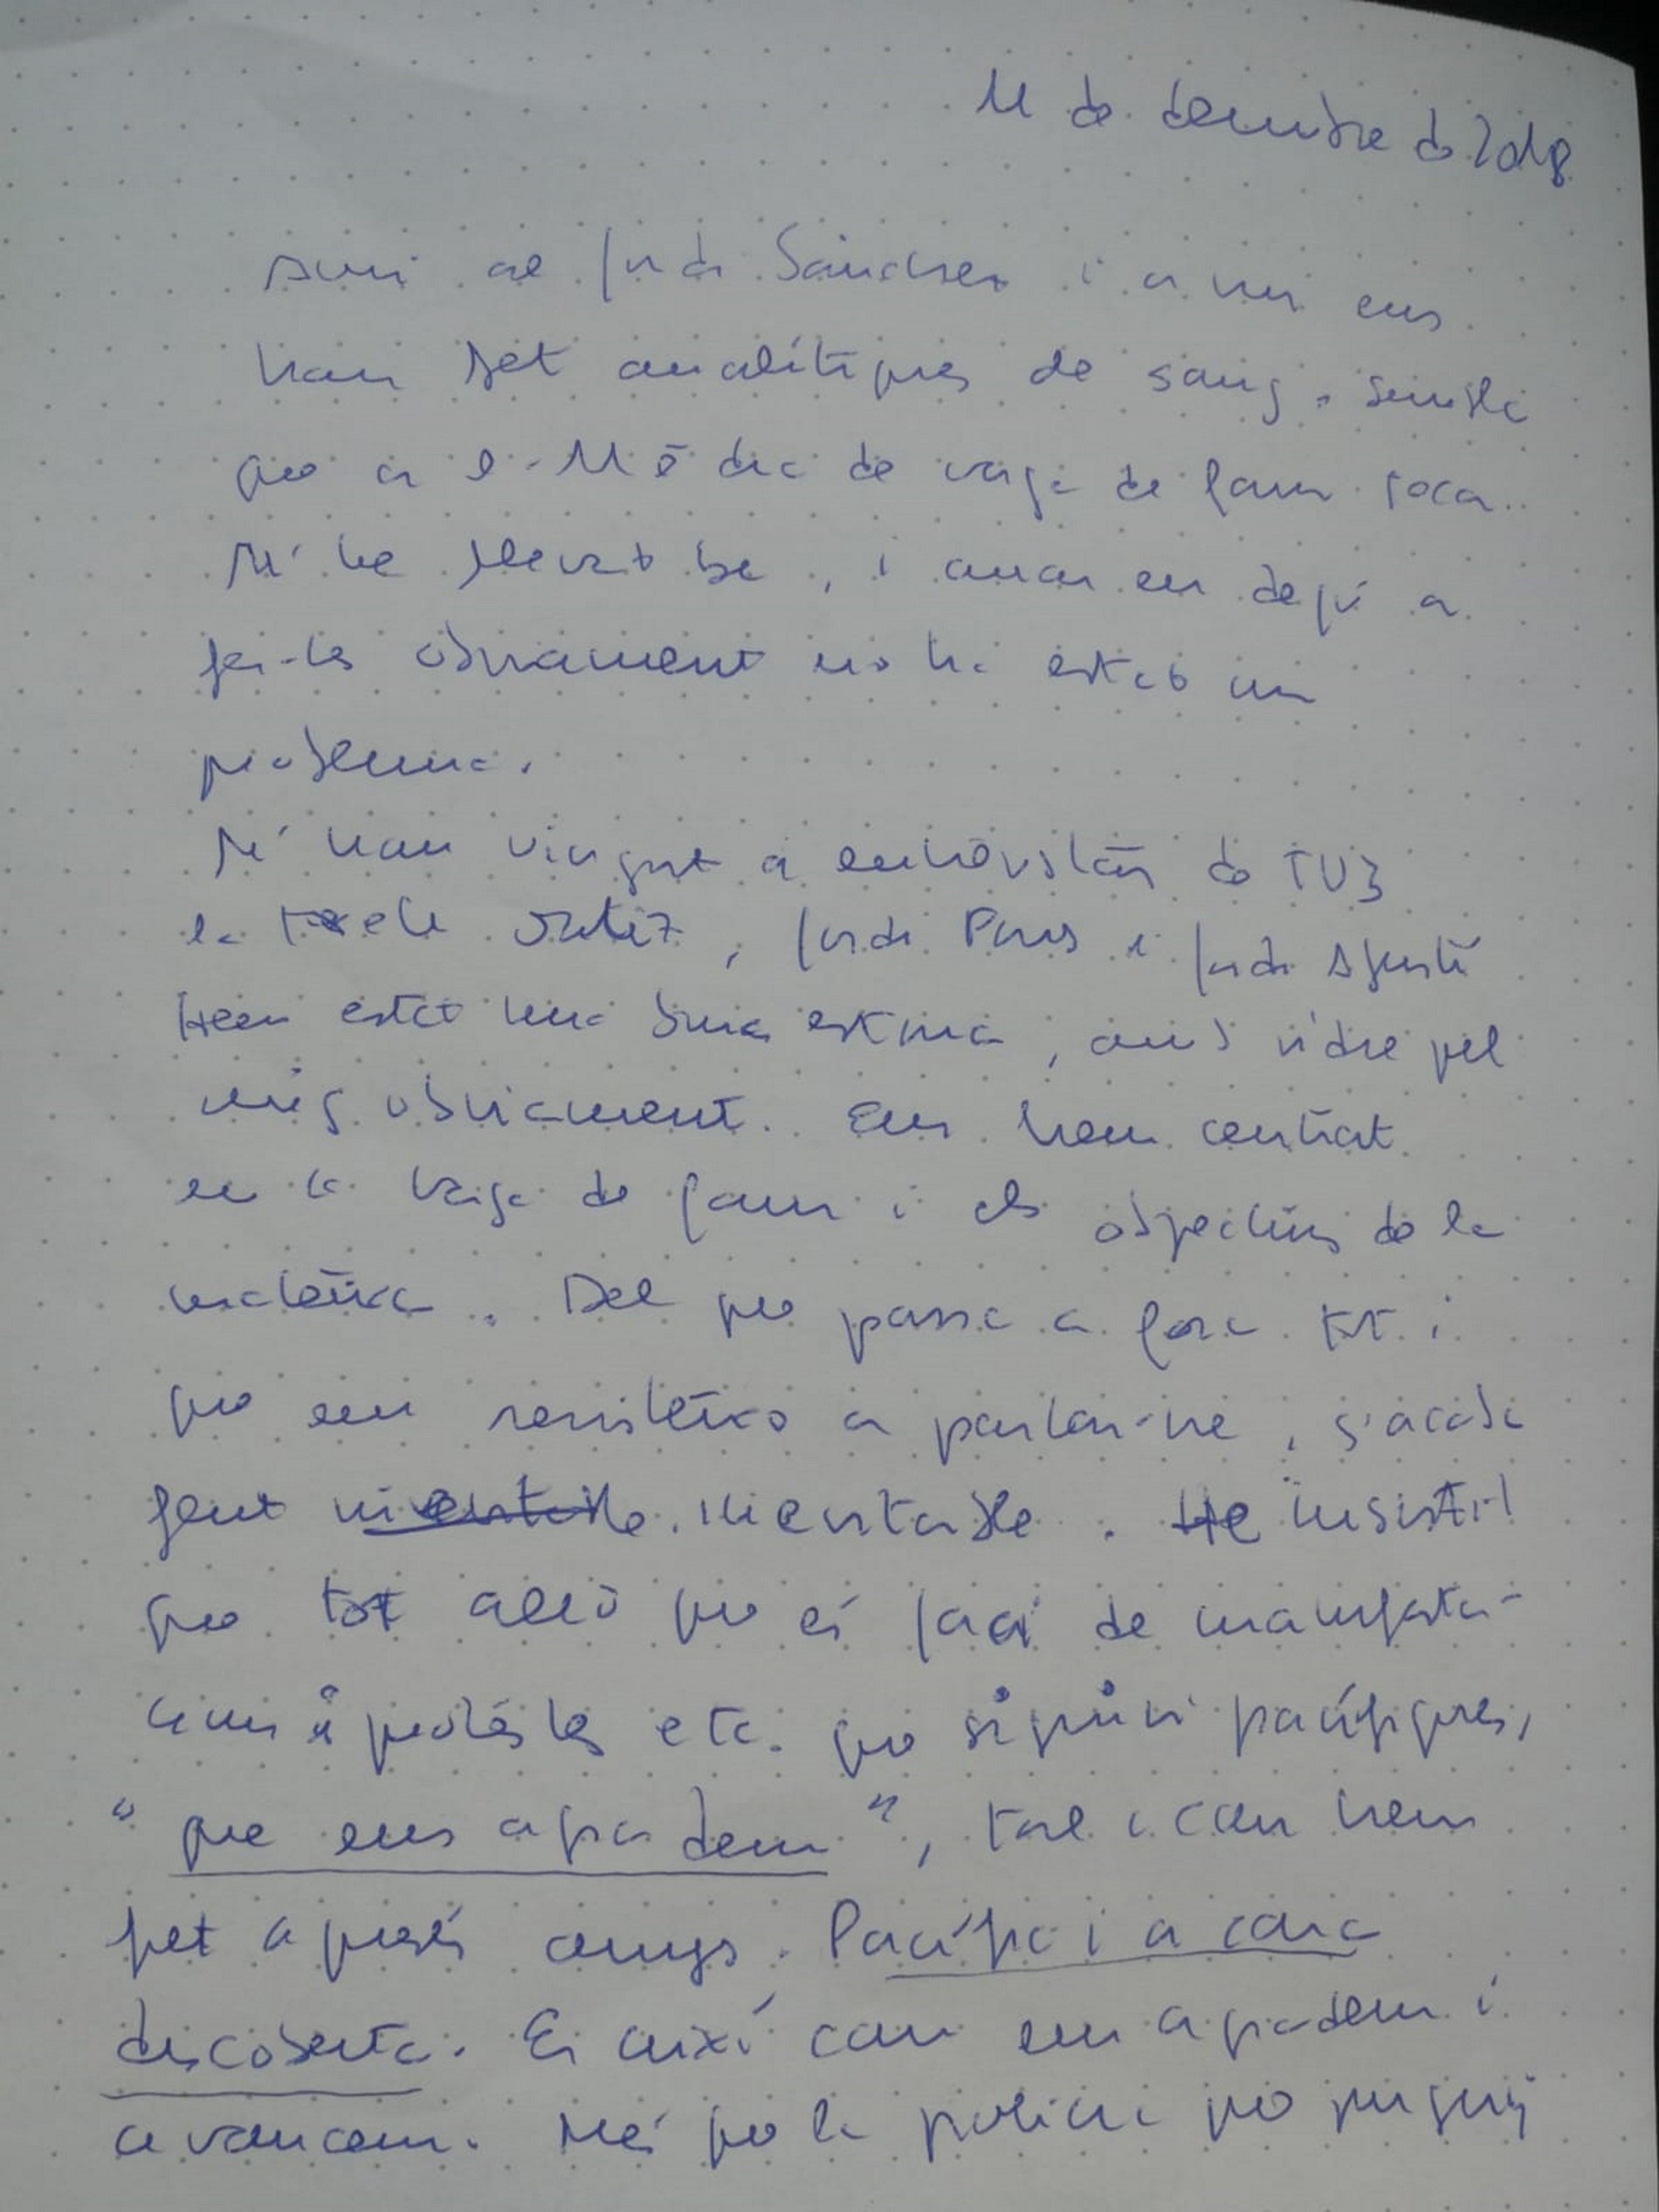 11 de desembre de 2018
Avui al Jordi Sànchez i a mi ens
han fet analítiques de sang. Sembla
que a l'11è dia de vaga de fam toca.
M'he llevat bé, i anar en dejú a
fer-les òbviament no ha estat un
problema.
M'han vingut a entrevistar de TV3
la Ortiz, Jordi Pons i Jordi
Hem estat una bona estona, amb vidre pel
mig òbviament. Ens hem centrat
en la vaga de fam i els objectius de la
mateixa. Del que passa a fora tot i
que em resisteixo a parlar-ne, s'acaba
fent inevitable. He insistit
que tot allò que es faci de manifesta-
cions i protestes etc. que siguin pacífiques,
"que ens agradem", tal i com hem
fet aquests anys. Pacífic i a cara
descoberta. És així com ens agradem i
avancem. Més que la policia que pugui